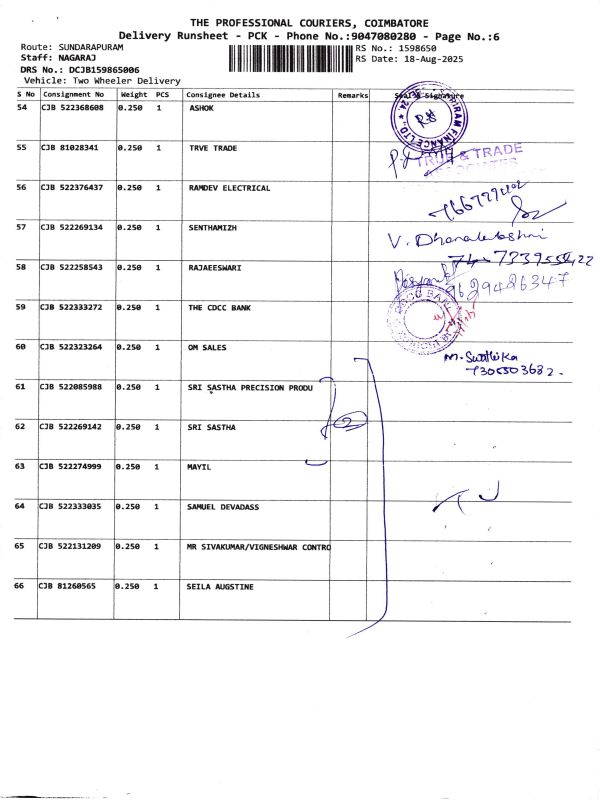 THE PROFESSIONAL COURIERS, COIMBATORE
Delivery Runsheet - PCK - Phone No.:9047080280 - Page No.:6
Route: SUNDARAPURAM RS No.: 1598650
Staff: NAGARAJ RS Date: 18-Aug-2025
DRS No.: DCJB159865006
Vehicle: Two Wheeler Delivery
S No Consignment No Weight PCS Consignee Details Remarks Seal & Signature
54 CJB 522368608 0.250 1 ASHOK
55 CJB 81028341 0.250 1 TRVE TRADE
TRUE & TRADE
56 CJB 522376437 0.250 1 RAMDEV ELECTRICAL
57 CJB 522269134 0.250 1 SENTHAMIZH
V. Dhanalakshmi
58 CJB 522258543 0.250 1 RAJAEESWARI
9629426347
59 CJB 522333272 0.250 1 THE CDCC BANK
60 CJB 522323264 0.250 1 OM SALES
M. Suthika
7305503682.
61 CJB 522085988 0.250 1 SRI SASTHA PRECISION PRODU
62 CJB 522269142 0.250 1 SRI SASTHA
2
63 CJB 522274999 0.250 1 MAYIL
64 CJB 522333035 0.250 1 SAMUEL DEVADASS
65 CJB 522131209 0.250 1 MR SIVAKUMAR/VIGNESHWAR CONTRO
66 CJB 81260565 0.250 1 SEILA AUGSTINE